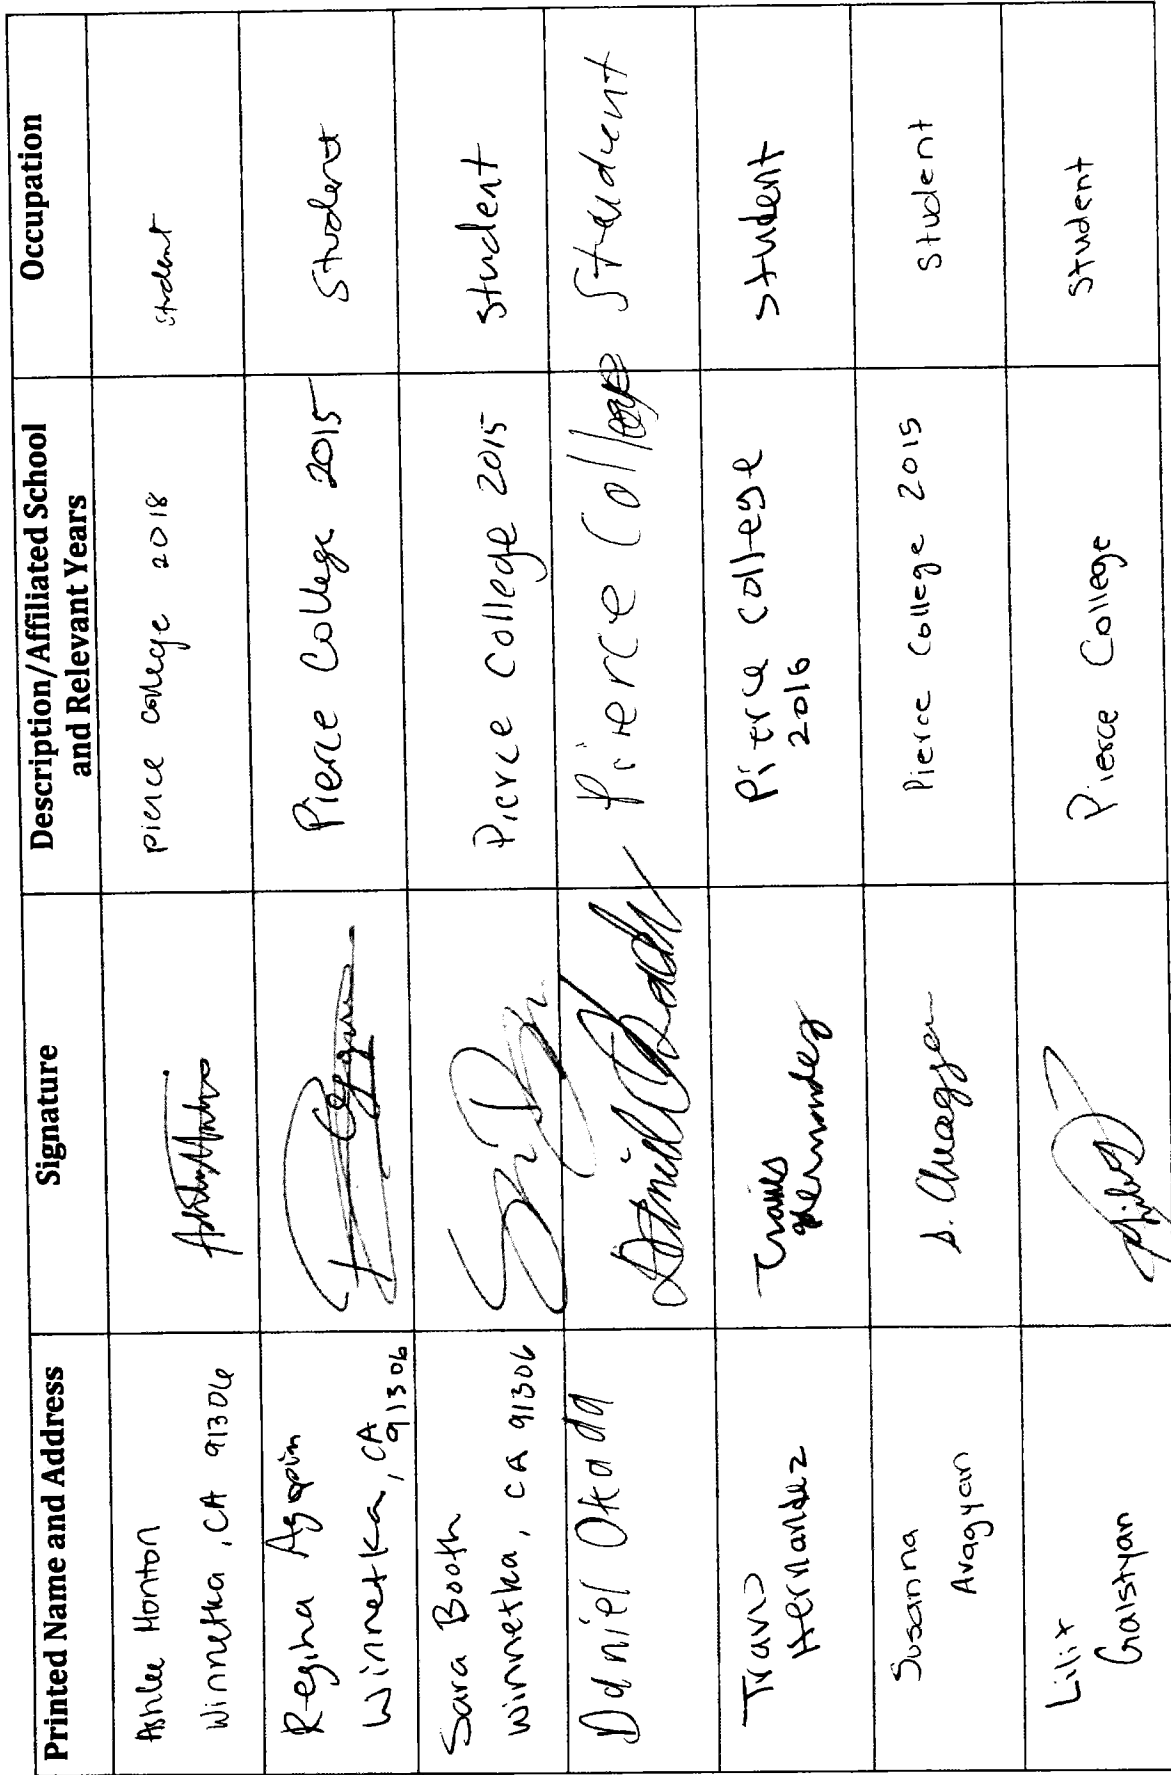 Printed Name and Address
Signature
Description/Affiliated School
and Relevant Years
Occupation
Ashlee Honton
Winnetka, CA 91306
pierce college 2018
student
Regina Agopim
Winnetka, CA
91306
Pierce College 2015
Student
Sara Booth
Winnetka, CA 91306
Pierce College 2015
student
Daniel Okada
Pierce College
Student
Travis
Hernandez
Travis
Hernandez
Pierce College
2016
student
Susanna
Aragyan
S. Aragyan
Pierce College 2015
Student
Lilit
Galstyan
Pierce College
Student